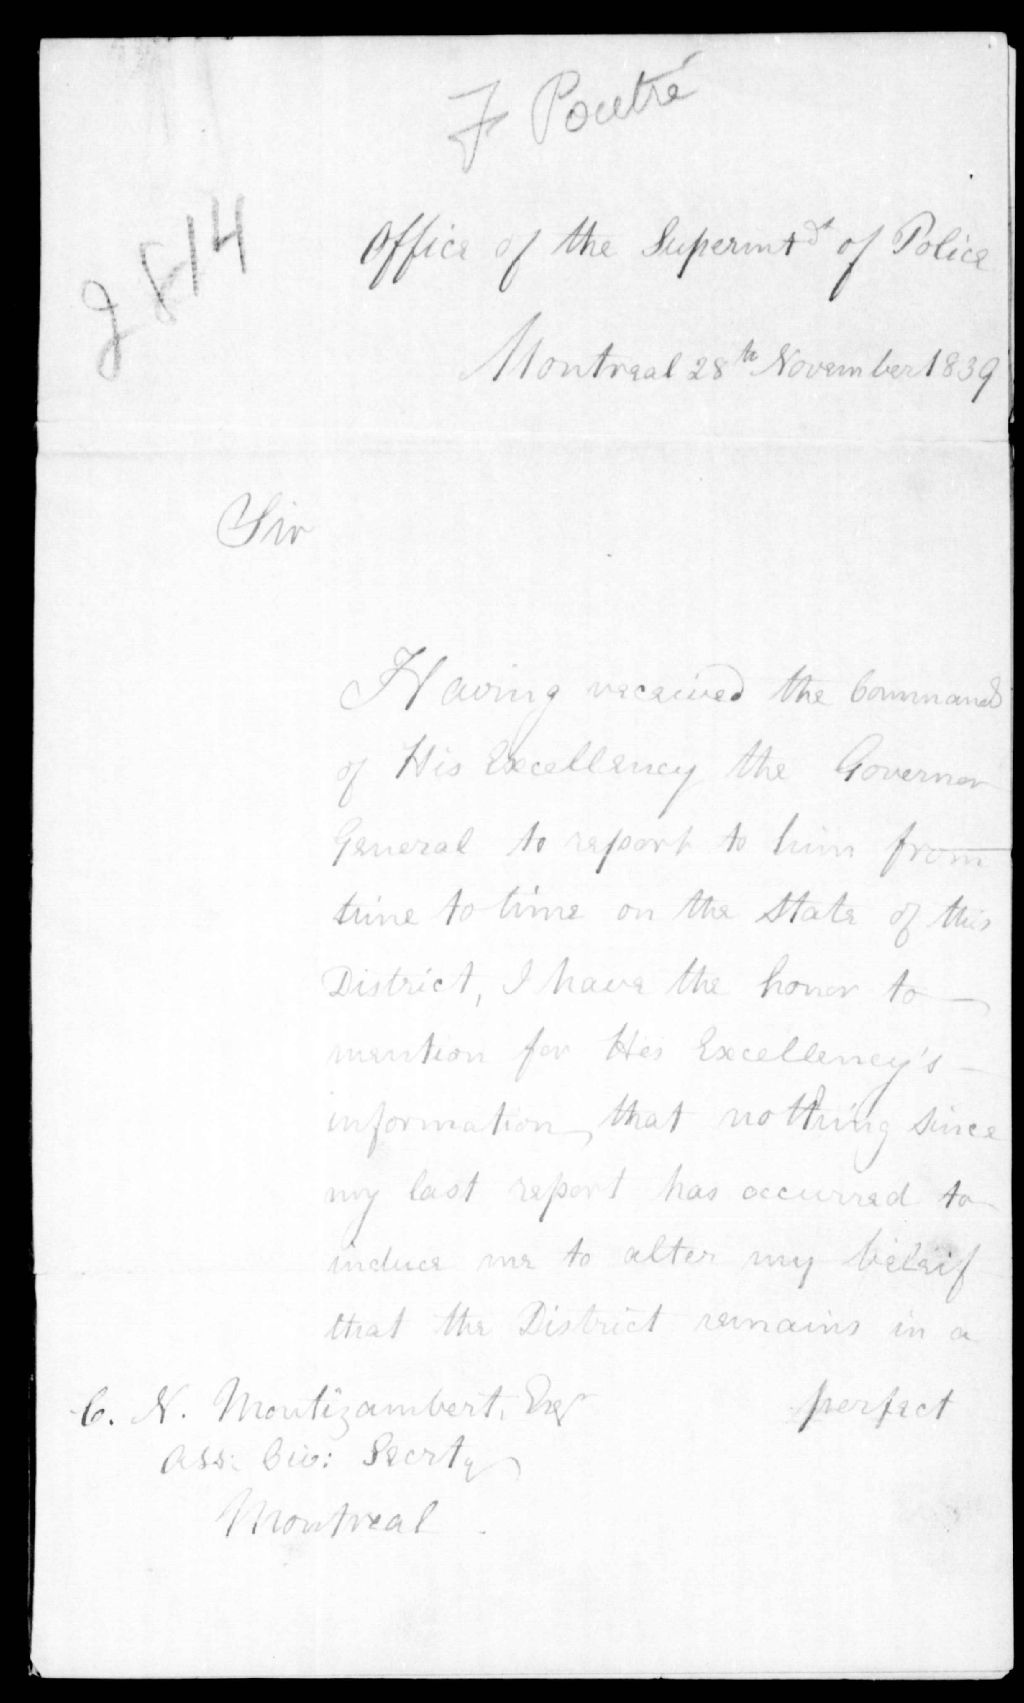 F Poutré
2814
Office of the Superintdt of Police
Montreal 28th November 1839
Sir
Having received the Commands
of His Excellency the Governor
General to report to him from
time to time on the State of this
District, I have the honor to
mention for His Excellency's
information, that nothing since
my last report has occurred to
induce me to alter my beleif
that the District remains in a
perfect
C. N. Montizambert, Esqr
Ass: Civ: Secrty
Montreal